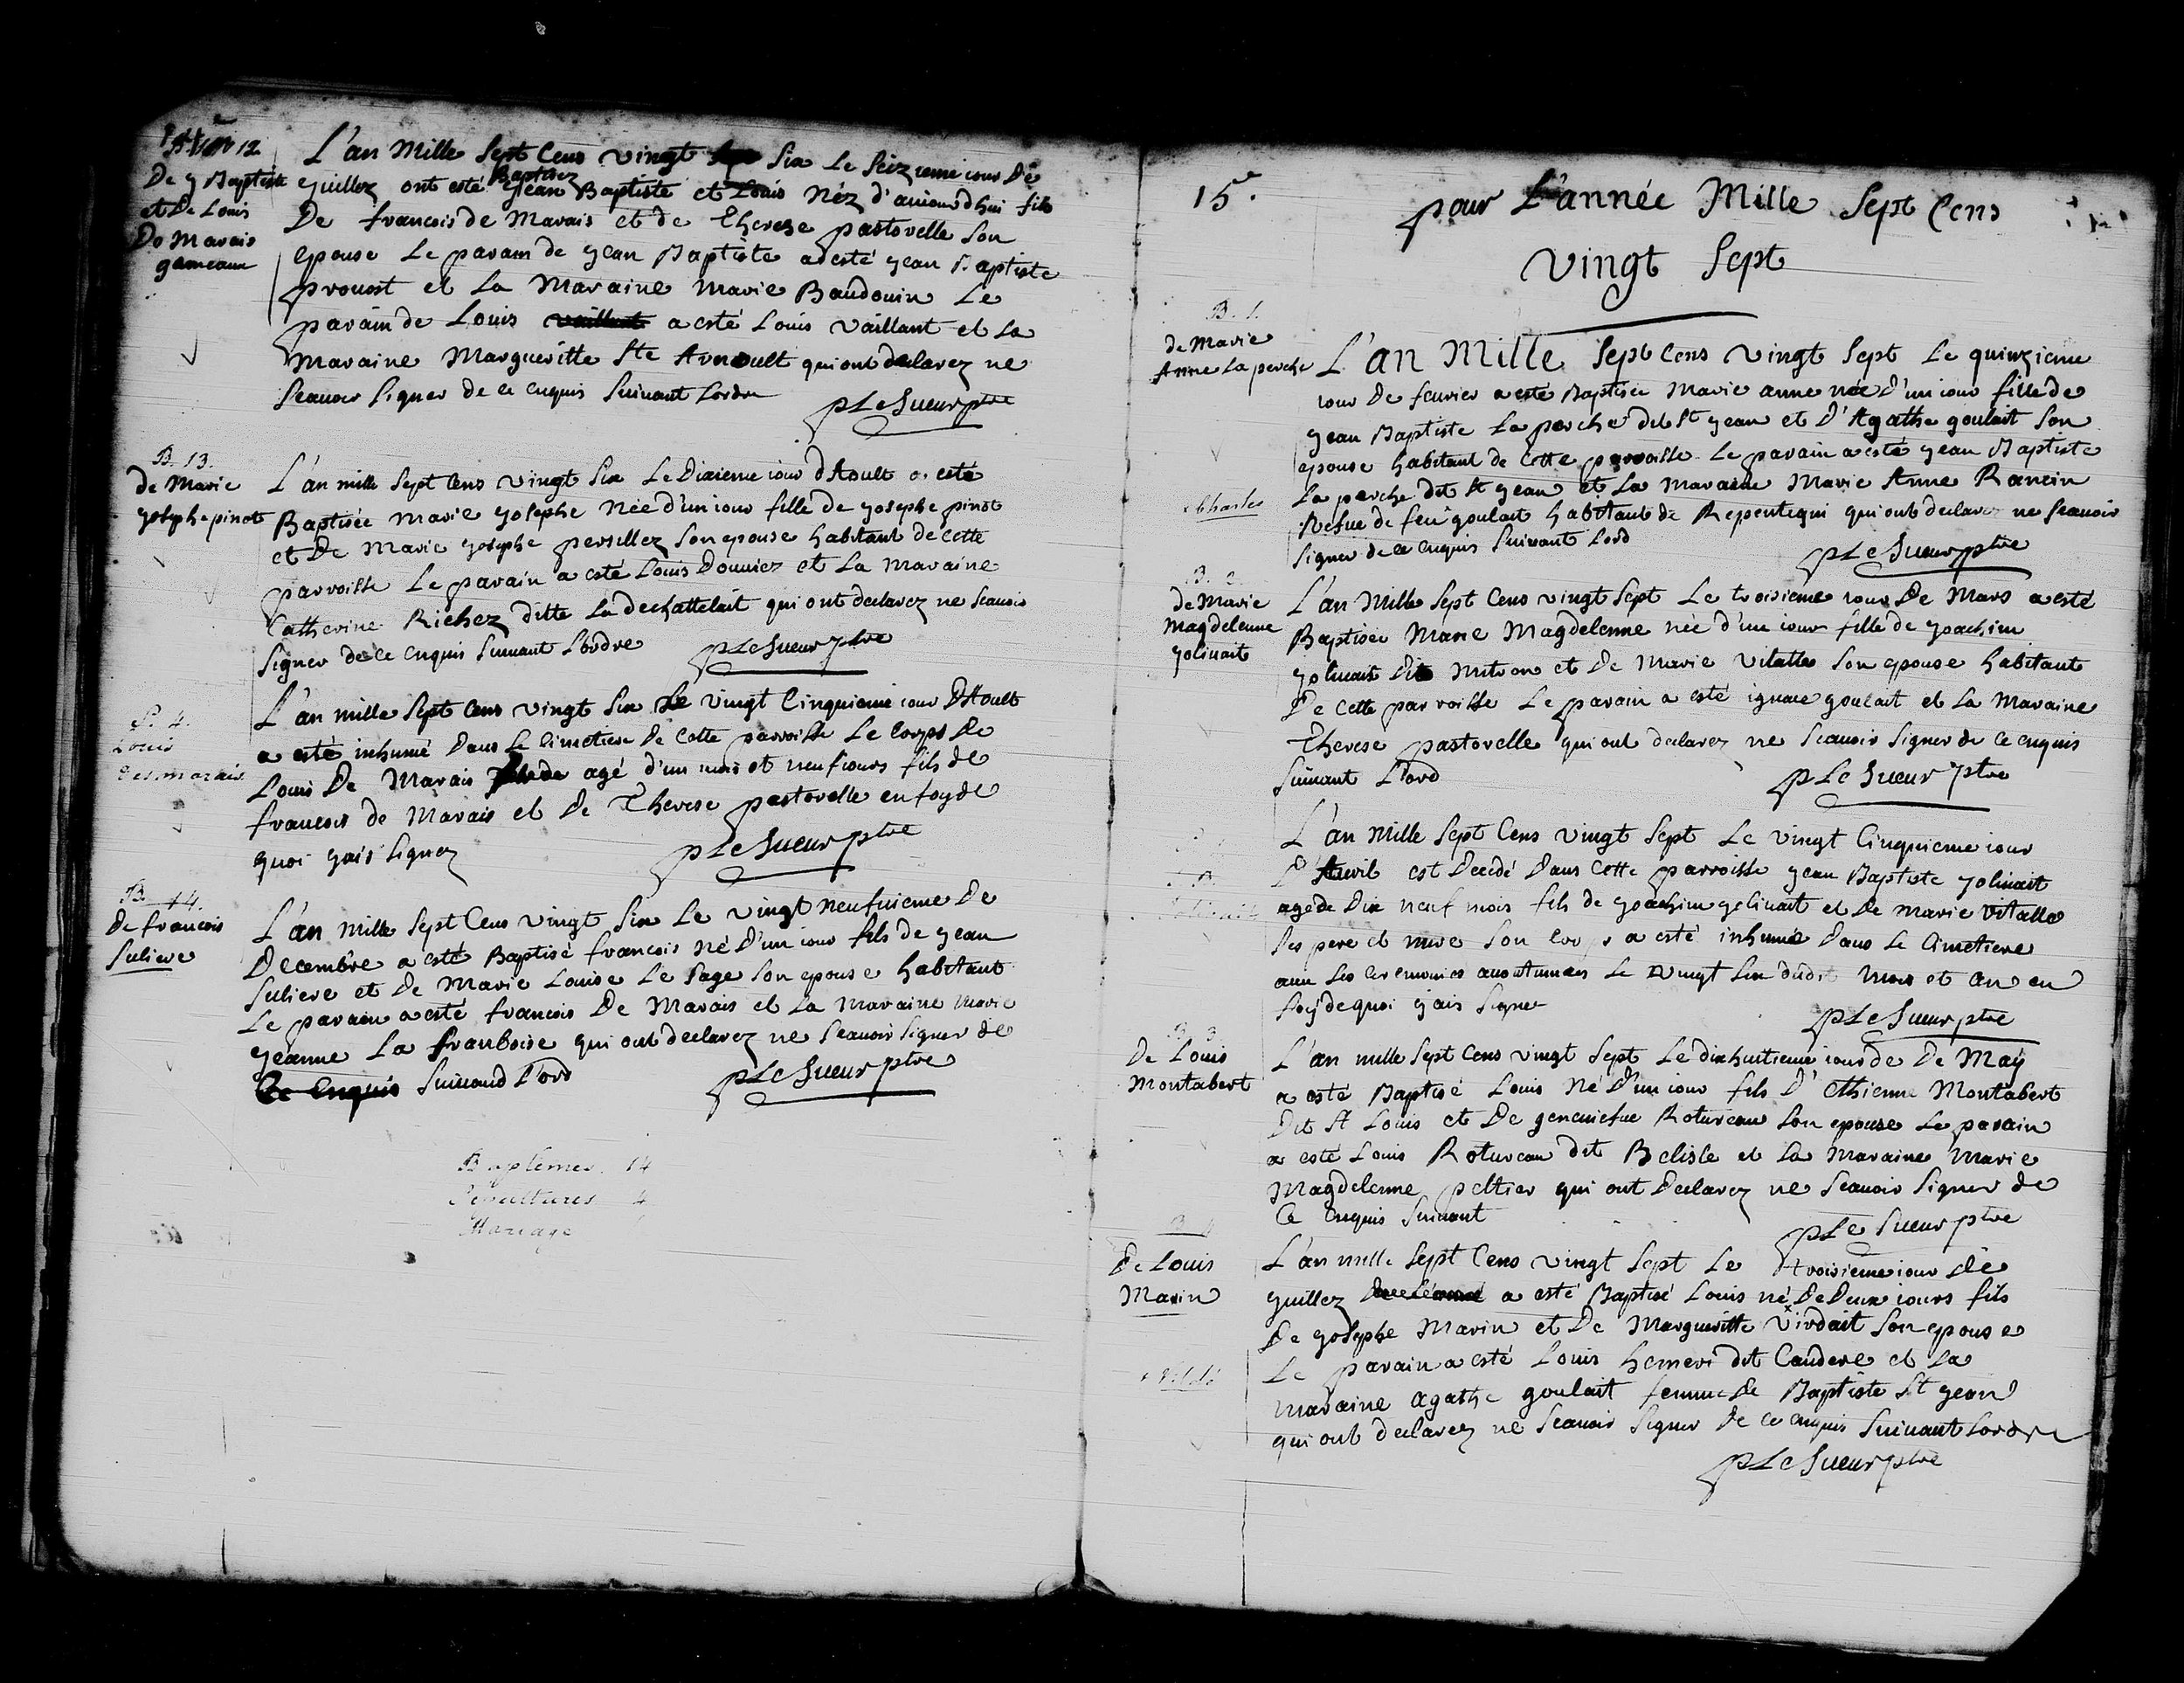 12
De y Baptiste
et De Louis
De Marais
gemeaux
L'an Mille Sept Cens vingt Six Le Seizieme iour De
yuillez ont esté Baptisez yean Baptiste et Louis Néz d'auiourdhui fils
De francois de Marais et de Therese pastorelle son
epouse Le parain de yean Baptiste a esté yean Baptiste
prouost et La Maraine Marie Baudouin Le
parain de Louis a esté Louis Vaillant et La
Maraine Margueritte Ste Arnoult qui ont declarez ne
Scauoir Signer de ce enquis Suiuant Lordre
P Le Sueur ptre
B. 13.
de Marie
yosephe pinot
L'an mille Sept Cens vingt Six Le Dixieme iour d'Aoult a esté
Baptisée Marie yosephe Née d'un iour fille de yosephe pinot
et De Marie yosephe persillez Son epouse habitant de cette
parroisse Le parain a esté Louis Douniez et La Maraine
Catherine Richez ditte La dechattelait qui ont declarez ne Scauoir
Signer de ce enquis Suiuant Lordre
P Le Sueur ptre
S. 4.
Louis
Desmarais
L'an mille Sept Cens vingt Six Le vingt Cinquieme iour D'Aoult
a esté inhumé Dans Le Cimetiere De Cette parroisse Le Corps De
Louis De Marais agé d'un mois et neuf iours fils de
francois de Marais et de Therese pastorelle en foy de
quoi yais Signez
P Le Sueur ptre
B. 14.
De francois
Suliere
L'an Mille Sept Cens vingt Six Le vingt neufuieme De
Decembre a esté Baptisé francois Né D'un iour fils de yean
Suliere et De Marie Louise Le Sage Son epouse habitant
Le parain a esté francois De Marais et La Maraine Marie
yeanne La franboise qui ont declarez ne Scauoir Signer de
Ce Enquis Suiuand L'ord
P Le Sueur ptre
Baptemes. 14
Sepultures 4
Mariage
15e.
pour L'année Mille Sept Cens
vingt Sept
B. 1.
de Marie
Anne La perche
L'an Mille Sept Cens vingt Sept Le quinzieme
iour De feurier a esté Baptisée Marie anne née d'un iour fille de
yean Baptiste La perche dit St yean et D'Agathe goulait Son
epouse habitant de Cette parroisse Le parain a esté yean Baptiste
La perche dit St yean et La Maraine Marie Anne Rancin
+ Charles
Vefue de feu + goulait habitant de Repentegui qui ont declarez ne Scauoir
Signer de ce enquis Suiuant Lord
P Le Sueur ptre
B. 2.
de Marie
Magdelenne
yoliuait
L'an Mille Sept Cens vingt Sept Le troisieme iour De Mars a esté
Baptisée Marie Magdelenne née d'un iour fille de yoachim
yoliuait Dit Mitron et De Marie Vitalle Son epouse habitant
De Cette parroisse Le parain a esté ignace goulait et La Maraine
Therese pastorelle qui ont declarez ne Scauoir Signer de ce enquis
Suiuant L'ord
P Le Sueur ptre
L'an Mille Sept Cens vingt Sept Le vingt Cinquieme iour
D'Auvil est Decedé Dans Cette parroisse yean Baptiste yoliuait
age de Dix neuf mois fils de yoachim yoliuait et De Marie Vitalle
Ses pere et mere Son Corps a esté inhumé Dans Le Cimetiere
auec Les Ceremonies acoutumées Le vingt Six dudit Mois et an en
foy de quoi yais Signer
P Le Sueur ptre
B. 3
De Louis
Montabert
L'an mille Sept Cens vingt Sept Le dixhuitieme iour de De May
a esté Baptisé Louis Né D'un iour fils D'Ethienne Montabert
Dit St Louis et De geneuiefue Rotureau Son epouse Le parain
a esté Louis Rotureau dit Belisle et La Maraine Marie
Magdelenne peltier qui ont Declarez ne Scauoir Signer de
Ce Enquis Suiuant
P Le Sueur ptre
B. 4
De Louis
Marin
L'an mille Sept Cens vingt Sept Le troisieme iour De
yuillez a esté Baptisé Louis né De Deux iours fils
De yosephe Marin et De Margueritte Virdait Son epouse
Le parain a esté Louis hemeri dit Caudere et La
maraine agathe goulait femme de Baptiste St yean
qui ont declarez ne Scauoir Signer De ce enquis Suiuant Lordre
P Le Sueur ptre